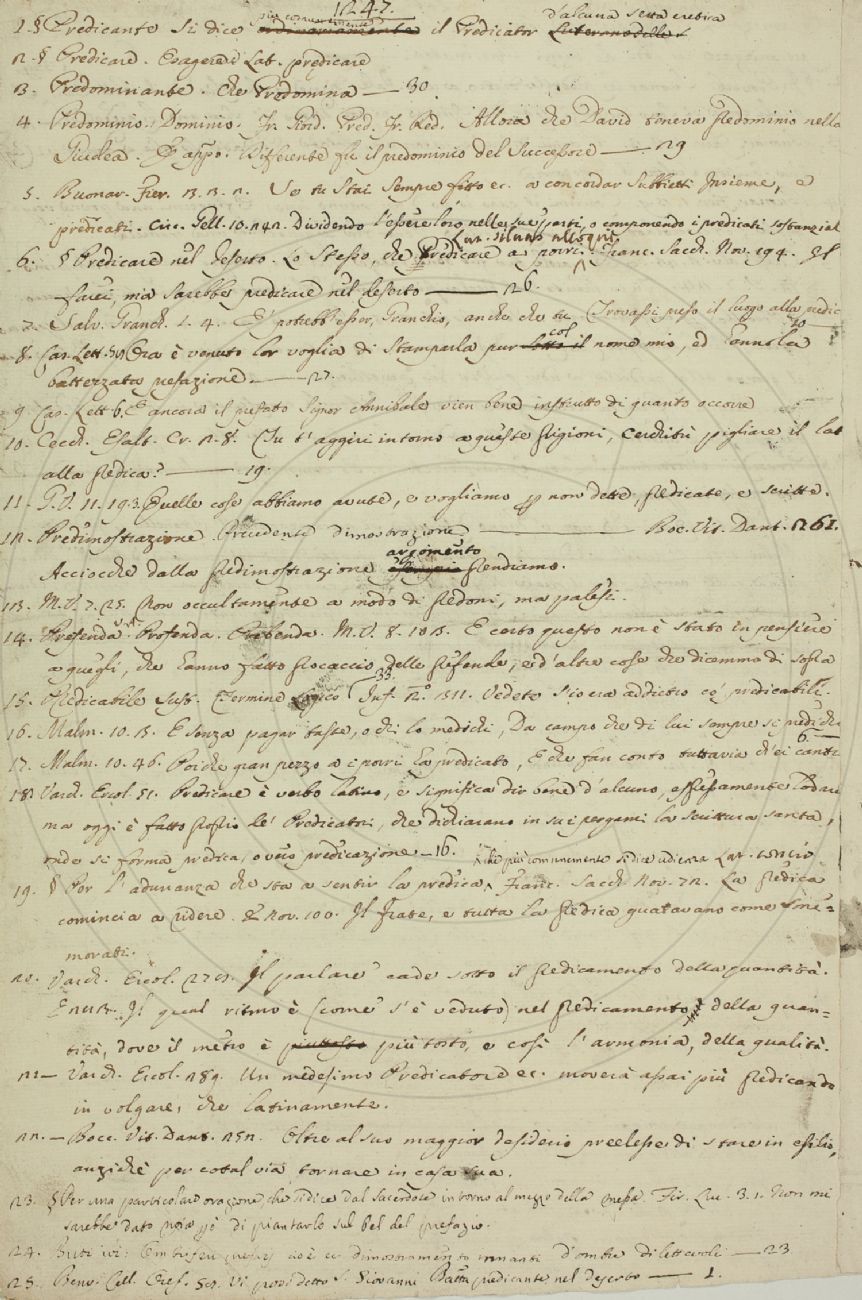 1247.
più comunemente d'alcuna setta eretica
1. § Predicante si dice ordinariamente il Predicator Luterano
2. § Predicare. Esagerare Lat. prędicare
3. Predominante. Che Predomina — 30
4. Predominio. Dominio. Fr. Giord. Pred. Allora che David teneva predominio nella
Giudea. E appo. Differente fu il predominio del Successore — 29
5. Buonar. Fier. Se tu stai sempre fitto ec. a concordar subbietti insieme, e
predicati. Circ. Gell. 10. 242. Dividendo l'essere loro nelle sue parti, o componendo i predicati sostanzial
Lat. siluas alloqui
6. § Predicare nel deserto. Lo stesso, che Predicare a' porri. Franc. Sacch. Nov. 194. Il
farei, ma sarebbe predicare nel deserto — 26.
7. Salv. Granch. 2. 4. E' potrebb'esser, Granchio, anche che tu Trovassi preso il luogo alla predic
8. Car. Lett. Ora è venuto lor voglia di stamparla pur sotto il col nome mio, ed hannola
battezzata prefazione — 27.
9. Car. Lett. 6. E ancora il prefato Signor Annibale vien bene instrutto di quanto occorre
10. Cecch. Esalt. Cr. 2. 8. Tu t'aggiri intorno a queste prigioni, pigliare il lat
alla predica? — 19.
11. G. V. 11. 19. 3. Quelle cose abbiamo avute, e vogliamo per non dette, predicate, e scritte.
12. Predimostrazione. Precedente dimostrazione — Boc. Vit. Dant. 261.
argomento
Acciocchè dalla predimostrazione prendiamo.
13. M. V. 7. 25. Non occultamente a modo di predoni, ma palesi.
14. Prefenda. Profenda. Prebenda. M. V. 8. E certo questo non è stato in pensiere
a quegli, che hanno fatto procaccio delle prefende, e d'altre cose che dicemmo di sopra
15. Predicabile Sust. Termine Logico 33. Vedete s'io era addietro co' predicabili.
16. Malm. 10. E senza pagar taste, o chi lo medichi, Da campo che di lui sempre si predichi
17. Malm. 10. 46. Poichè gran pezzo a i porri ha predicato, E che fan conto tuttavia ch'ei canti
18. Varch. Ercol. 51. Predicare è verbo latino, e significa dir bene d'alcuno, espressamente lodare
ma oggi è fatto proprio de' Predicatori, che dichiarano in su i pergami la scrittura santa,
onde si forma predica, ovvero predicazione — 16.
che più comunemente si dice udienza Lat. concio
19. § Per l'adunanza che sta a sentir la predica. Franc. Sacch. Nov. 72. La predica
comincia a ridere. E Nov. 100. Il frate, e tutta la predica guatavano come
morati.
20. Varch. Ercol. Il parlare cade sotto il predicamento della quantità.
E Il qual ritmo è (come s'è veduto) nel predicamento della quan-
tità, dove il metro è piuttosto più tosto, e così l'armonia, della qualità.
21. — Varch. Ercol. 289. Un medesimo Predicatore ec. moverà assai più predicando
in volgare, che latinamente.
22. — Bocc. Vit. Dant. 252. Oltre al suo maggior desiderio preelesse di stare in esilio,
anzichè per cotal via tornare in casa sua.
23. § Per una particolare orazione che si dice dal Sacerdote intorno al mezzo della messa. Fir. Luc. 3. 1. Non mi
sarebbe dato noia di piantarlo sul bel del prefazio.
24. Buti ivi: cioè dimostramento innanti d'ombre dilettevoli — 23
25. Benv. Cell. Oref. Vi posi detto S. Giovanni Batta predicante nel deserto — 1.